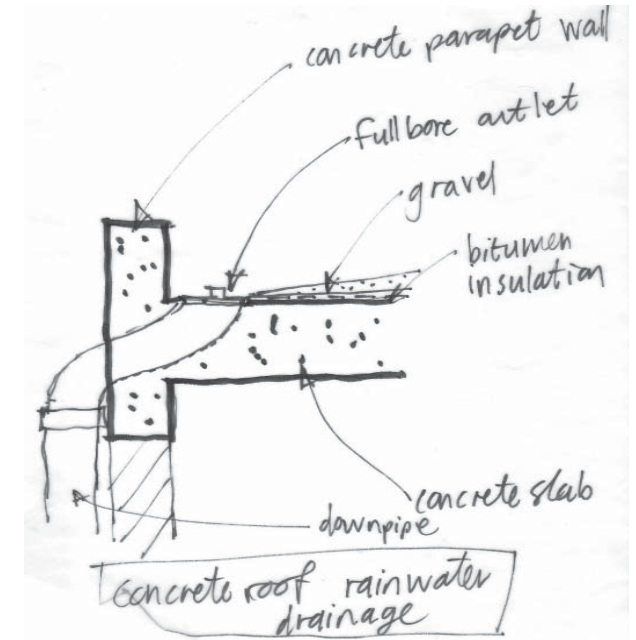 concrete parapet wall
fullbore outlet
gravel
bitumen
insulation
concrete slab
downpipe
concrete roof rainwater
drainage